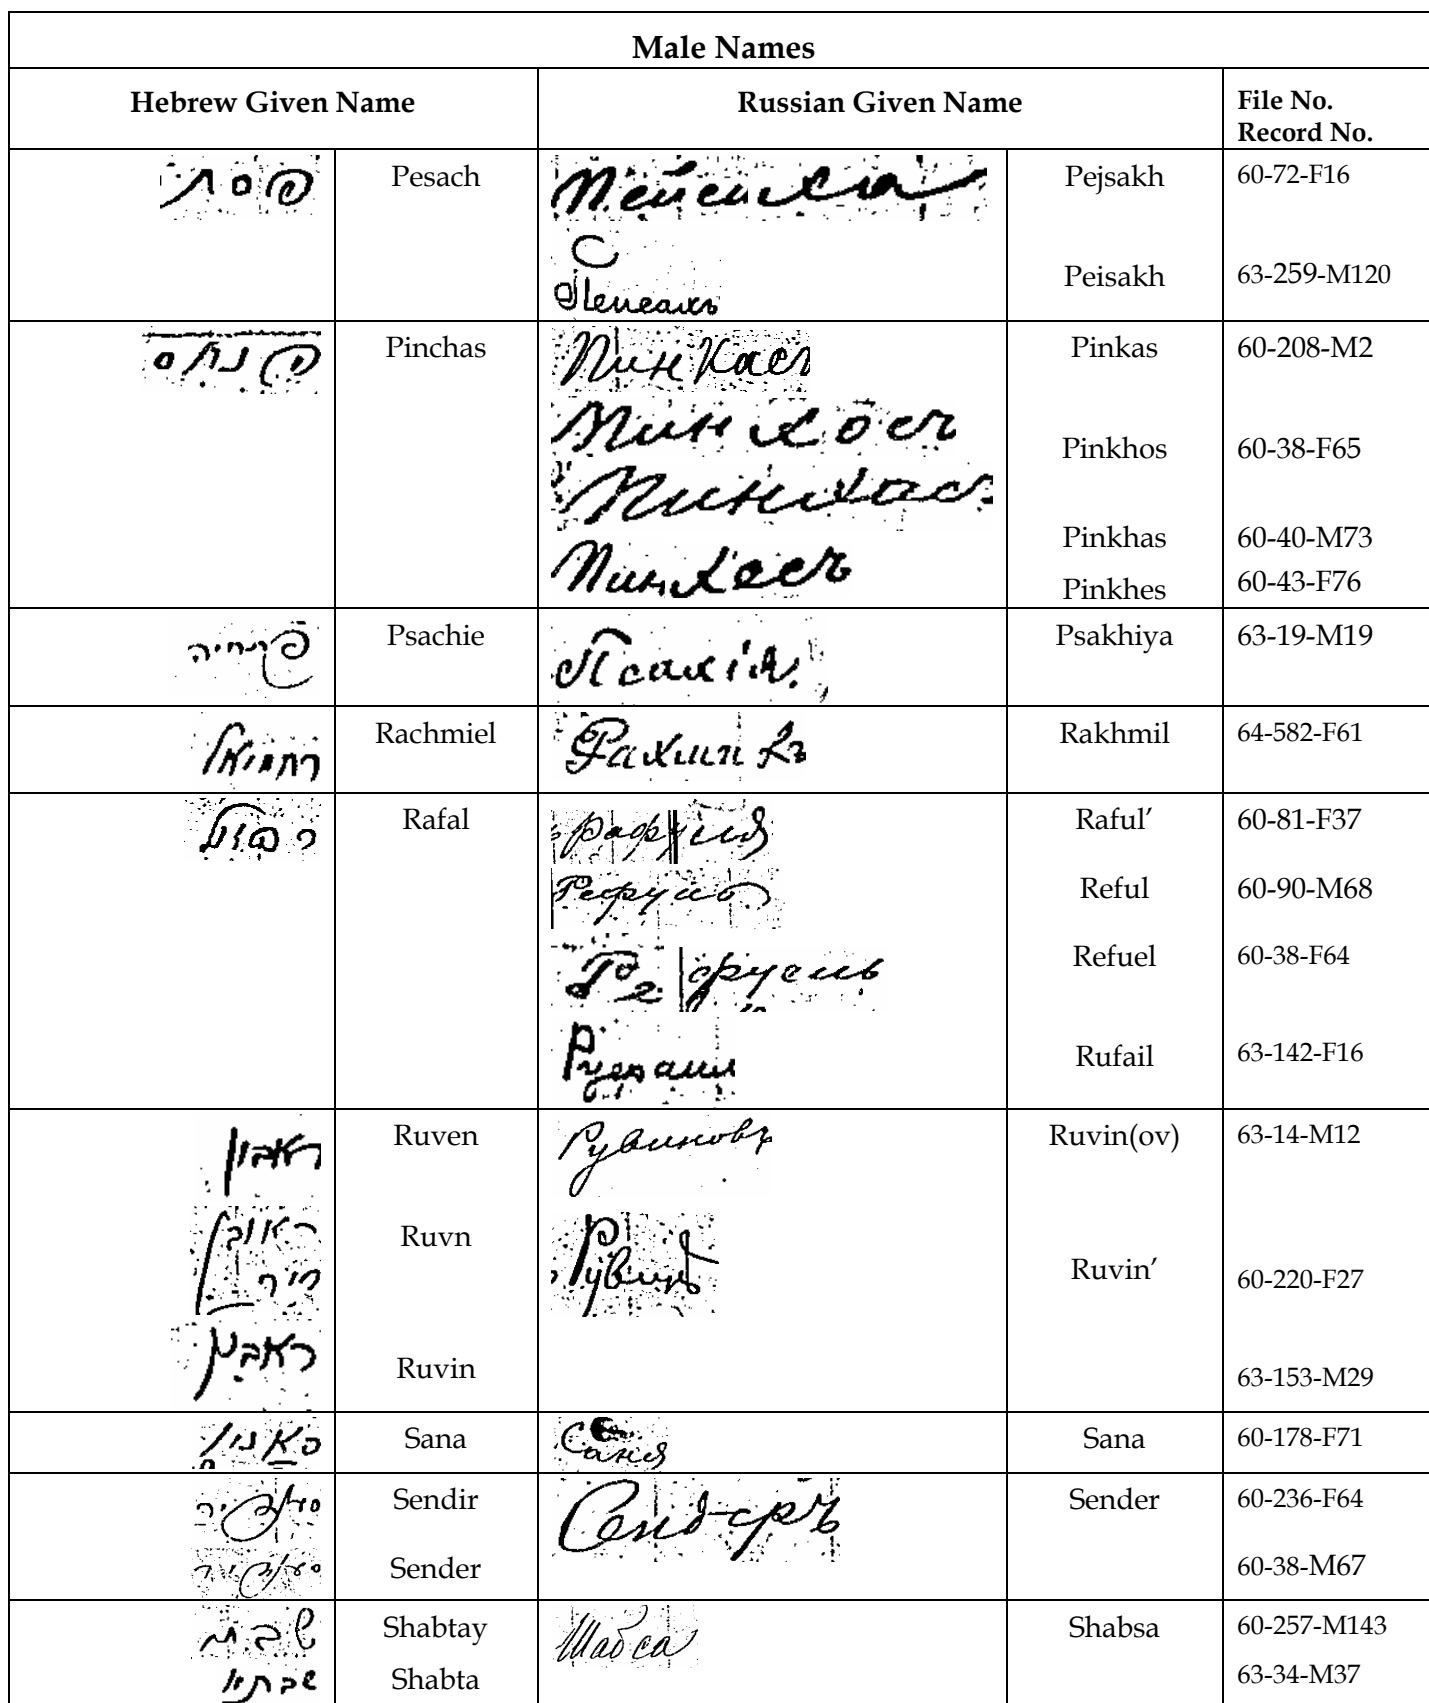 Male Names
Hebrew Given Name Russian Given Name File No.
Record No.
פסח Pesach Пейсаха Pejsakh 60-72-F16
Пейсахъ Peisakh 63-259-M120
פנחס Pinchas Пинкасъ Pinkas 60-208-M2
Пинхосъ Pinkhos 60-38-F65
Пинхасъ Pinkhas 60-40-M73
Пинхесъ Pinkhes 60-43-F76
Psachie Псахія Psakhiya 63-19-M19
רחמיאל Rachmiel Рахмилъ Rakhmil 64-582-F61
Rafal Рафуля Raful’ 60-81-F37
Рефуль Reful 60-90-M68
Рефуель Refuel 60-38-F64
Руфаил Rufail 63-142-F16
ראבון Ruven Рувиновъ Ruvin(ov) 63-14-M12
ראובן Ruvn Рувинъ Ruvin’ 60-220-F27
ראבין Ruvin 63-153-M29
Sana Саня Sana 60-178-F71
סענדיר Sendir Сендеръ Sender 60-236-F64
סענדיר Sender 60-38-M67
שבתי Shabtay Шабса Shabsa 60-257-M143
שבתא Shabta 63-34-M37